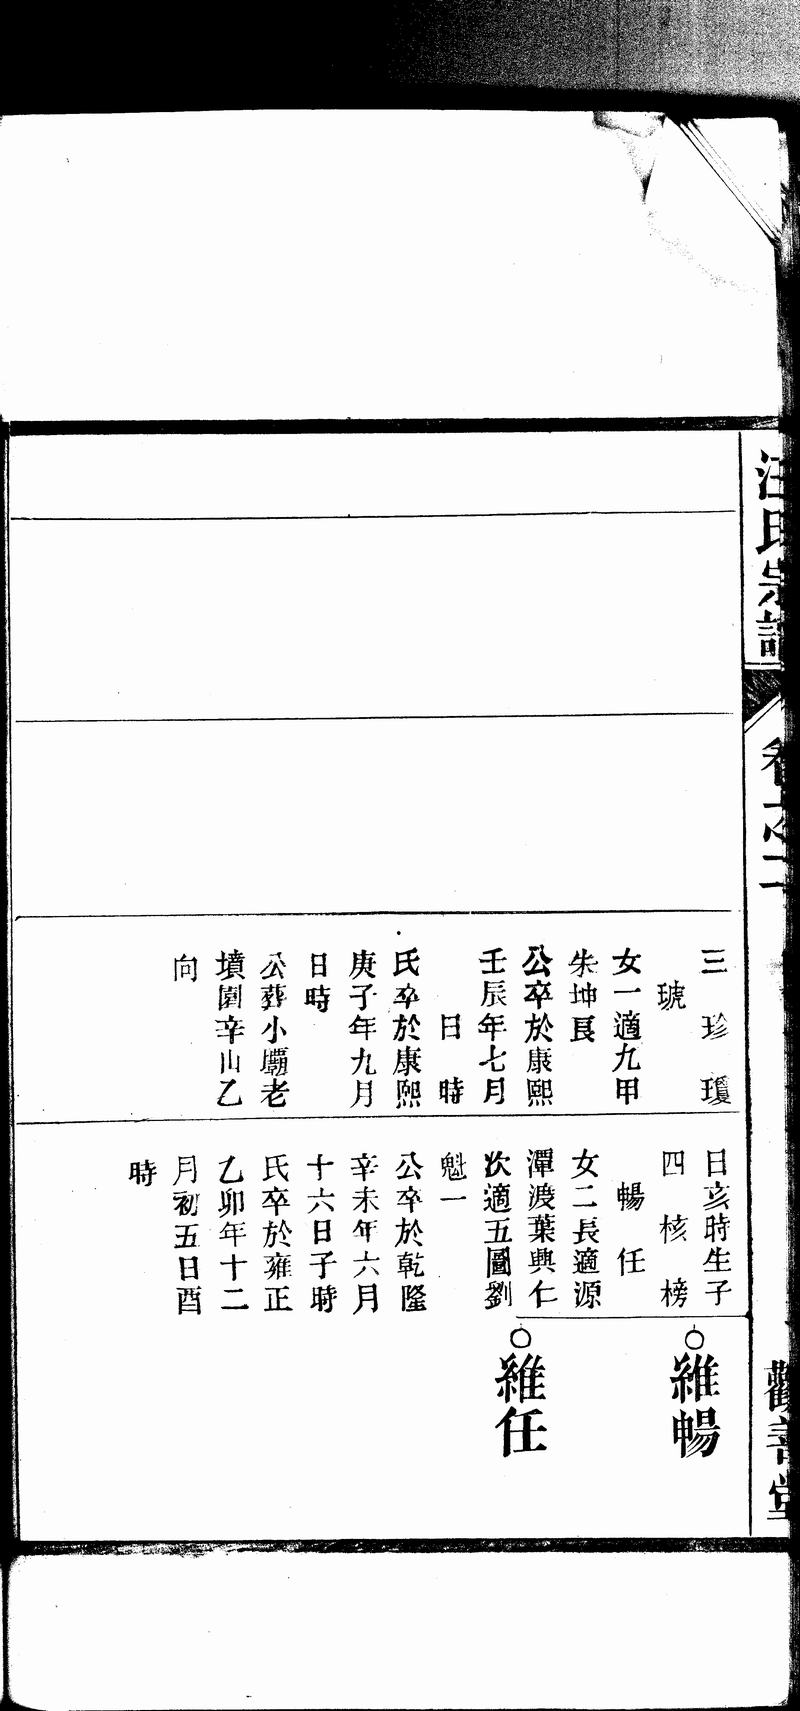 汪氏宗譜
卷之二
觀善堂
三珍瓊
琥
女一適九甲
朱坤艮
公卒於康熙
壬辰年七月
日時
氏卒於康熙
庚子年九月
日時
公葬小壩老
墳園辛山乙
向
日亥時生子
四核榜
暢任
女二長適源
潭渡葉興仁
次適五圖劉
魁一
公卒於乾隆
辛未年六月
十六日子時
氏卒於雍正
乙卯年十二
月初五日酉
時
維暢
維任